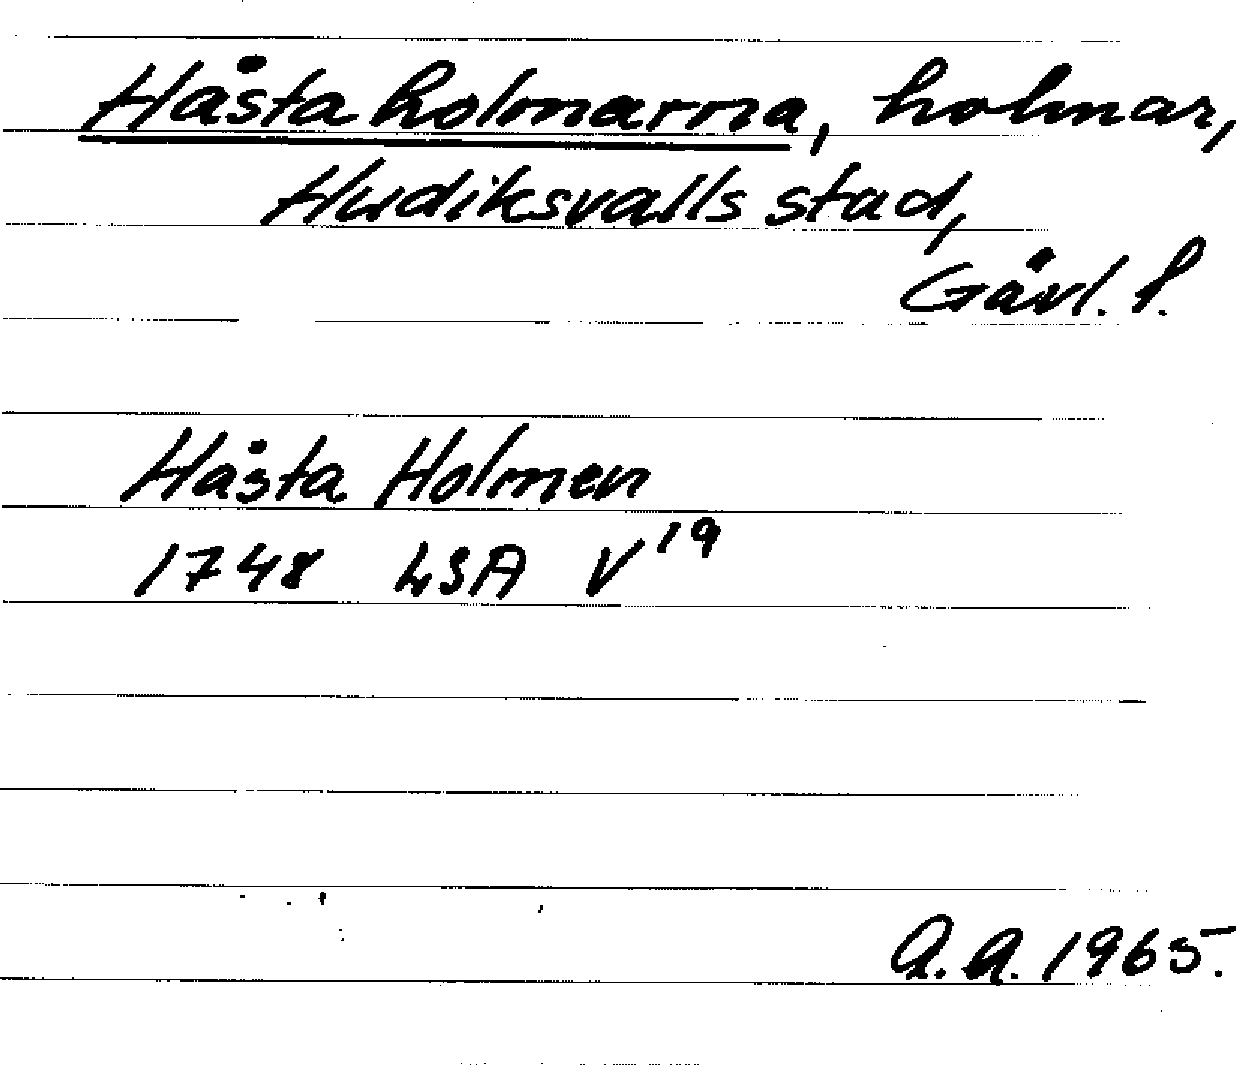 Håstaholmarna, holmar,
Hudiksvalls stad,
Gävl. l.
Håsta Holmen
1748 LSA V¹⁹
A.A. 1965.